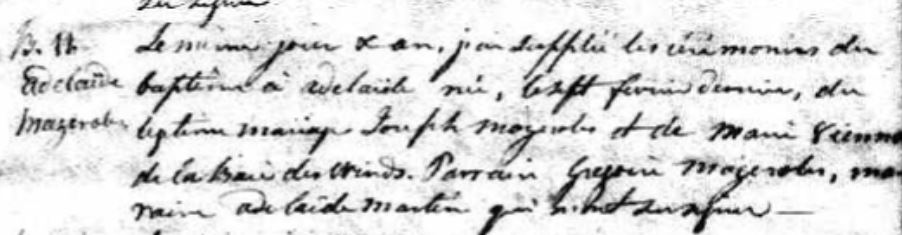 su signer
B. 11.
Adelaïde
Mazerole
Le même jour & an, j'ai supplié les cérémonies du
baptême à adelaide née, le sept fevrier dernier, du
legitime mariage Joseph mazerole et de Marie Vienneau
de la Baie des Winds. Parrain Gregoire Mazerole, mar
raine adelaïde martin qui n'ont su signer —